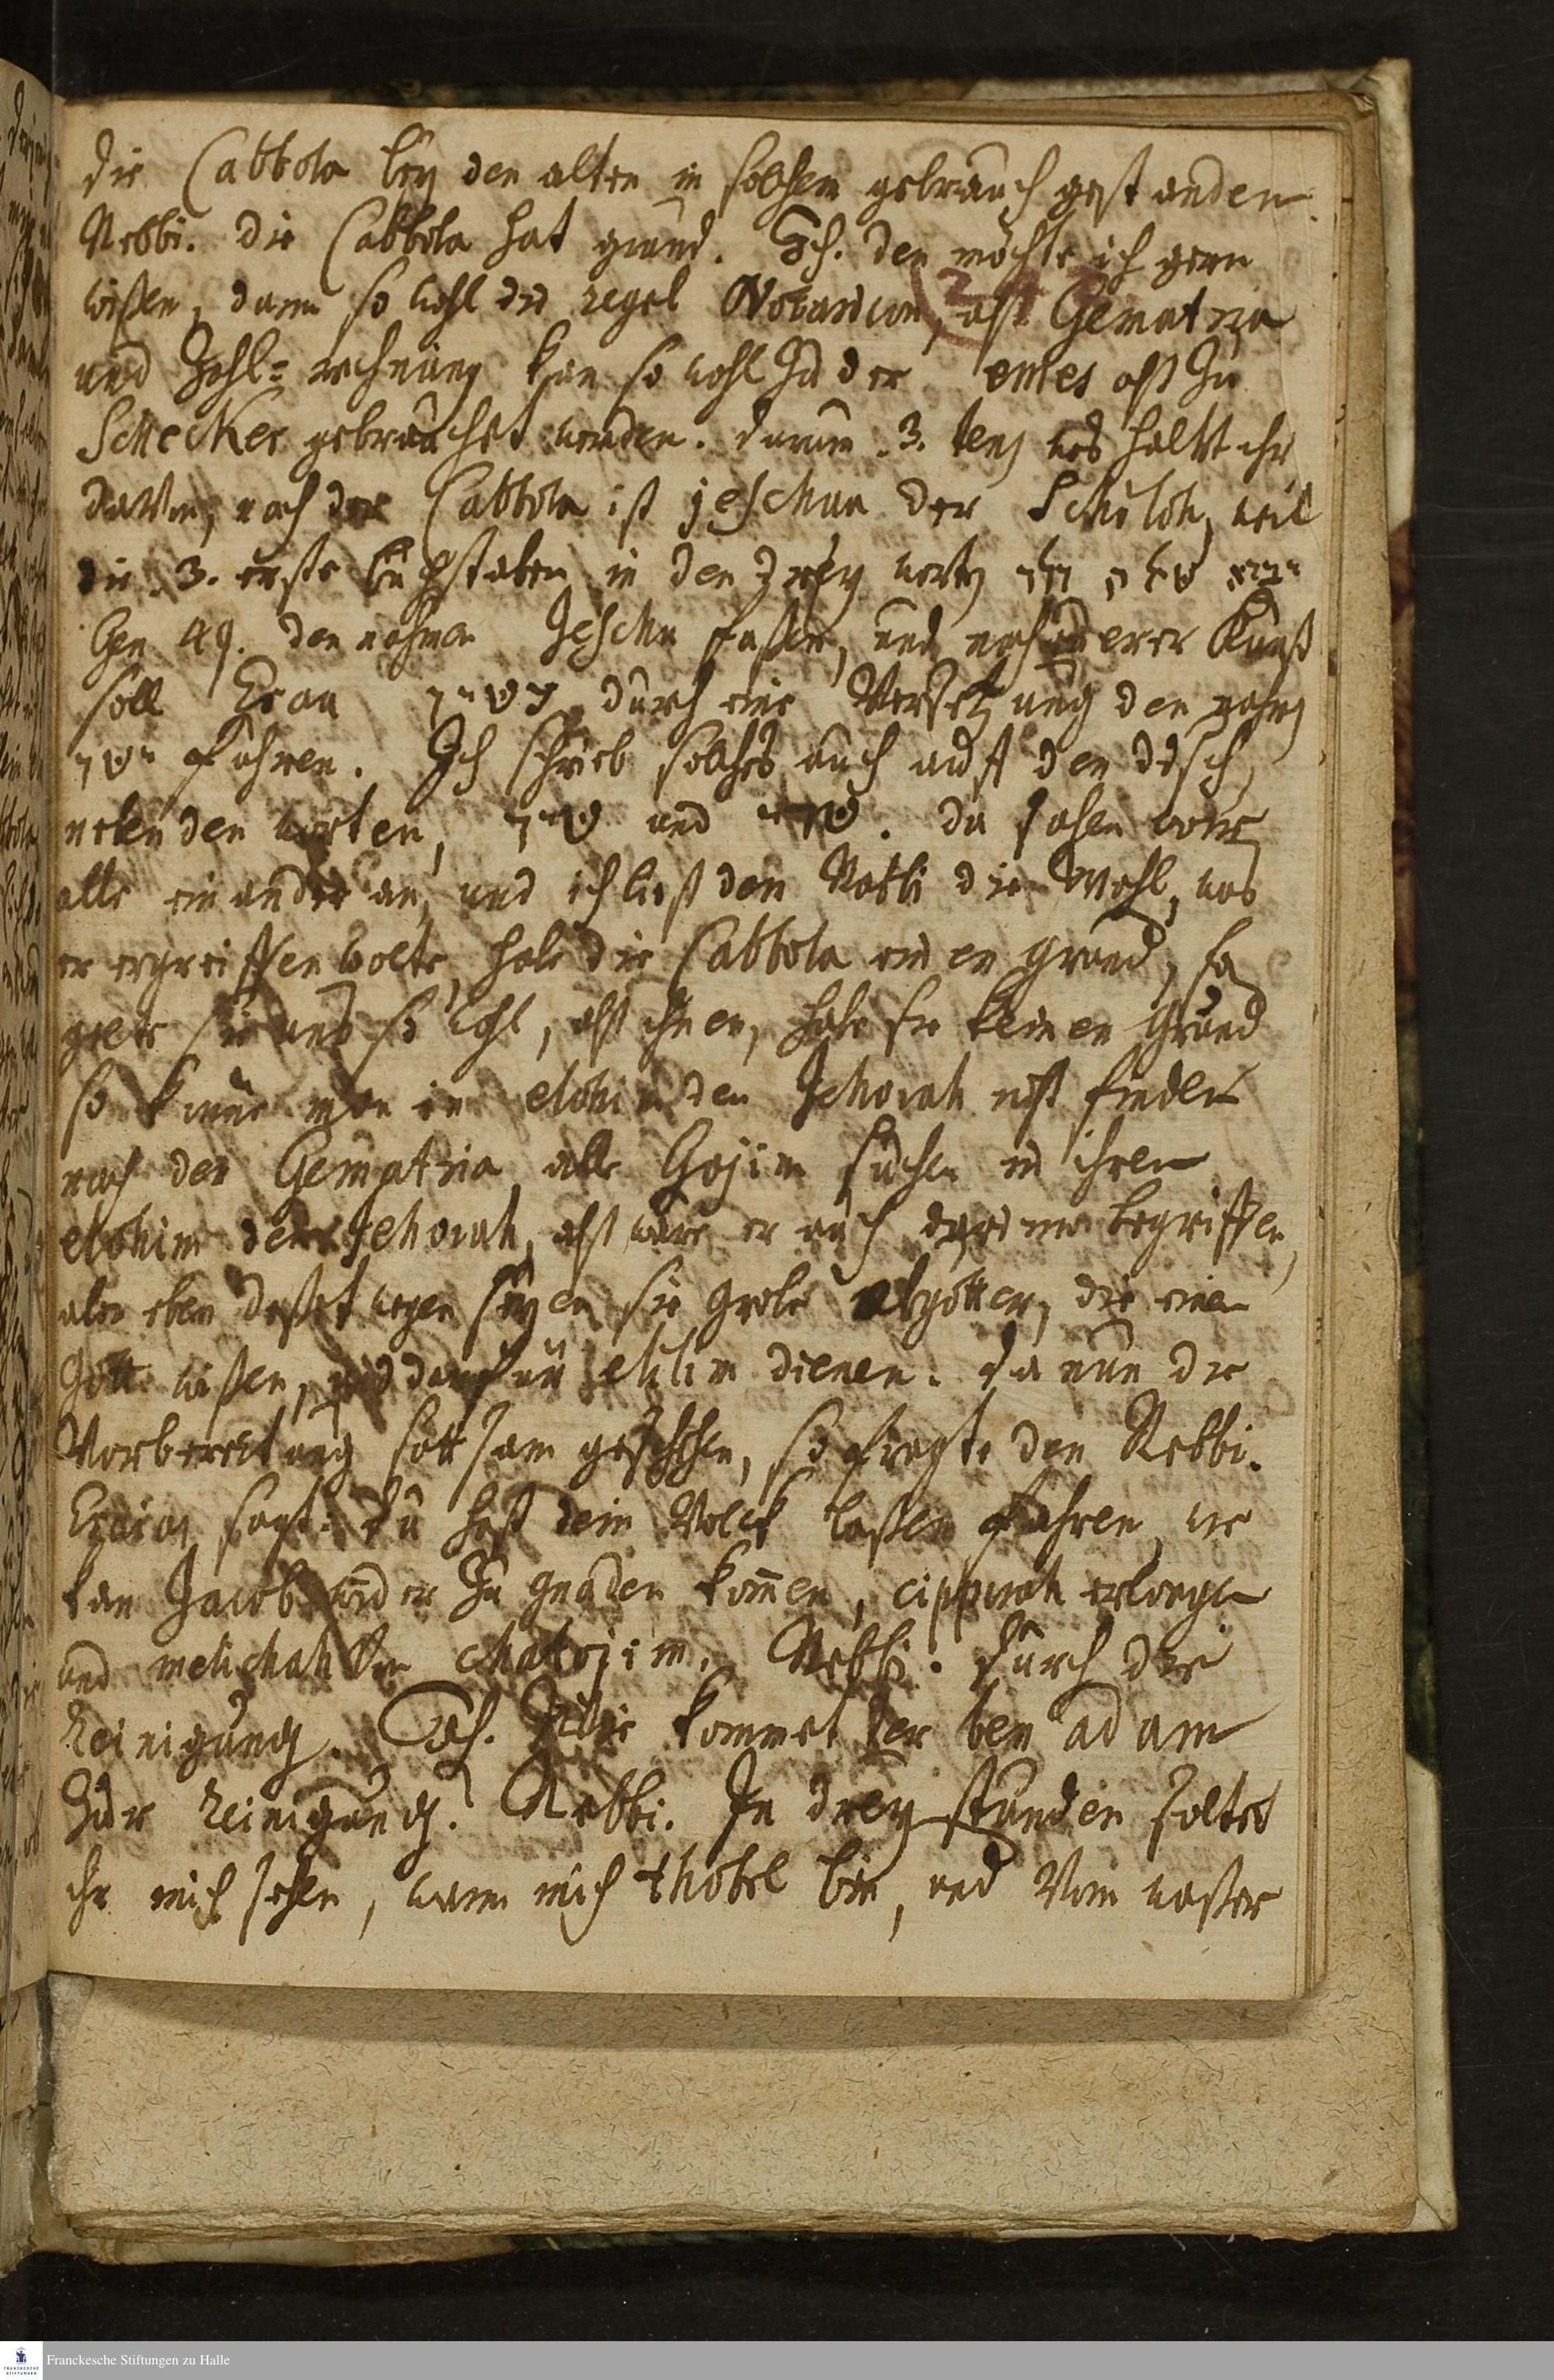 die Cabbola bey den alten in solchem gebrauch gestanden.
Rebbi. die Cabbola hat grund. Ich. den möchte ich gern
wißen, dann so wohl die regel Notaricon, alß Gematria
und Zahl-rechnung kan so wohl zu der emes alß zu
Schecker gebrauchet werden. darum 3. tens was haltet ihr
davon, nach der Cabbola ist jeschua der Schiloh, weil
die 3. erste buchstaben in den drey worten יבא שילה ולו
Gen 49. den nahmen Jeschu faßen, und nach unserer Kunst
soll Esau durch eine Versetzung den nahmen
ישו führen. Ich schrieb solches auch auff den disch,
neben den worten, und . da sahen wir
alle einander an, und ich ließ dem Rabbi die Wahl, was
er ergreiffen wolte, habe die Cabbola einen grund, so
gelte sie uns so wohl, alß ihnen, habe sie keinen Grund
so könne man in elohim den Jehovah nicht finden
nach der Gematria, alle Gojim suchen in ihren
elohim den Jehovah, alß wäre er auch darinne begriffen,
aber eben deßet wegen seyen sie grobe abgötter, die einen
Gott wißen, und darfür elilim dienen. da nun die
Vorbereitung sattsam geschehen, so fragte den Rebbi.
Esaias sagt: du hast dein Volck laßen fahren, wie
kan Jacob wider zu gnaden kommen, cippurah erlangen
und melichah von chatojim. Rebbi. durch die
Reinigung. Ich. Wie kommet der ben adam
zur Reinigung? Rebbi. In drey stunden soltet
ihr mich sehen, wann mich thobel bin, und vom waßer
Franckesche Stiftungen zu Halle